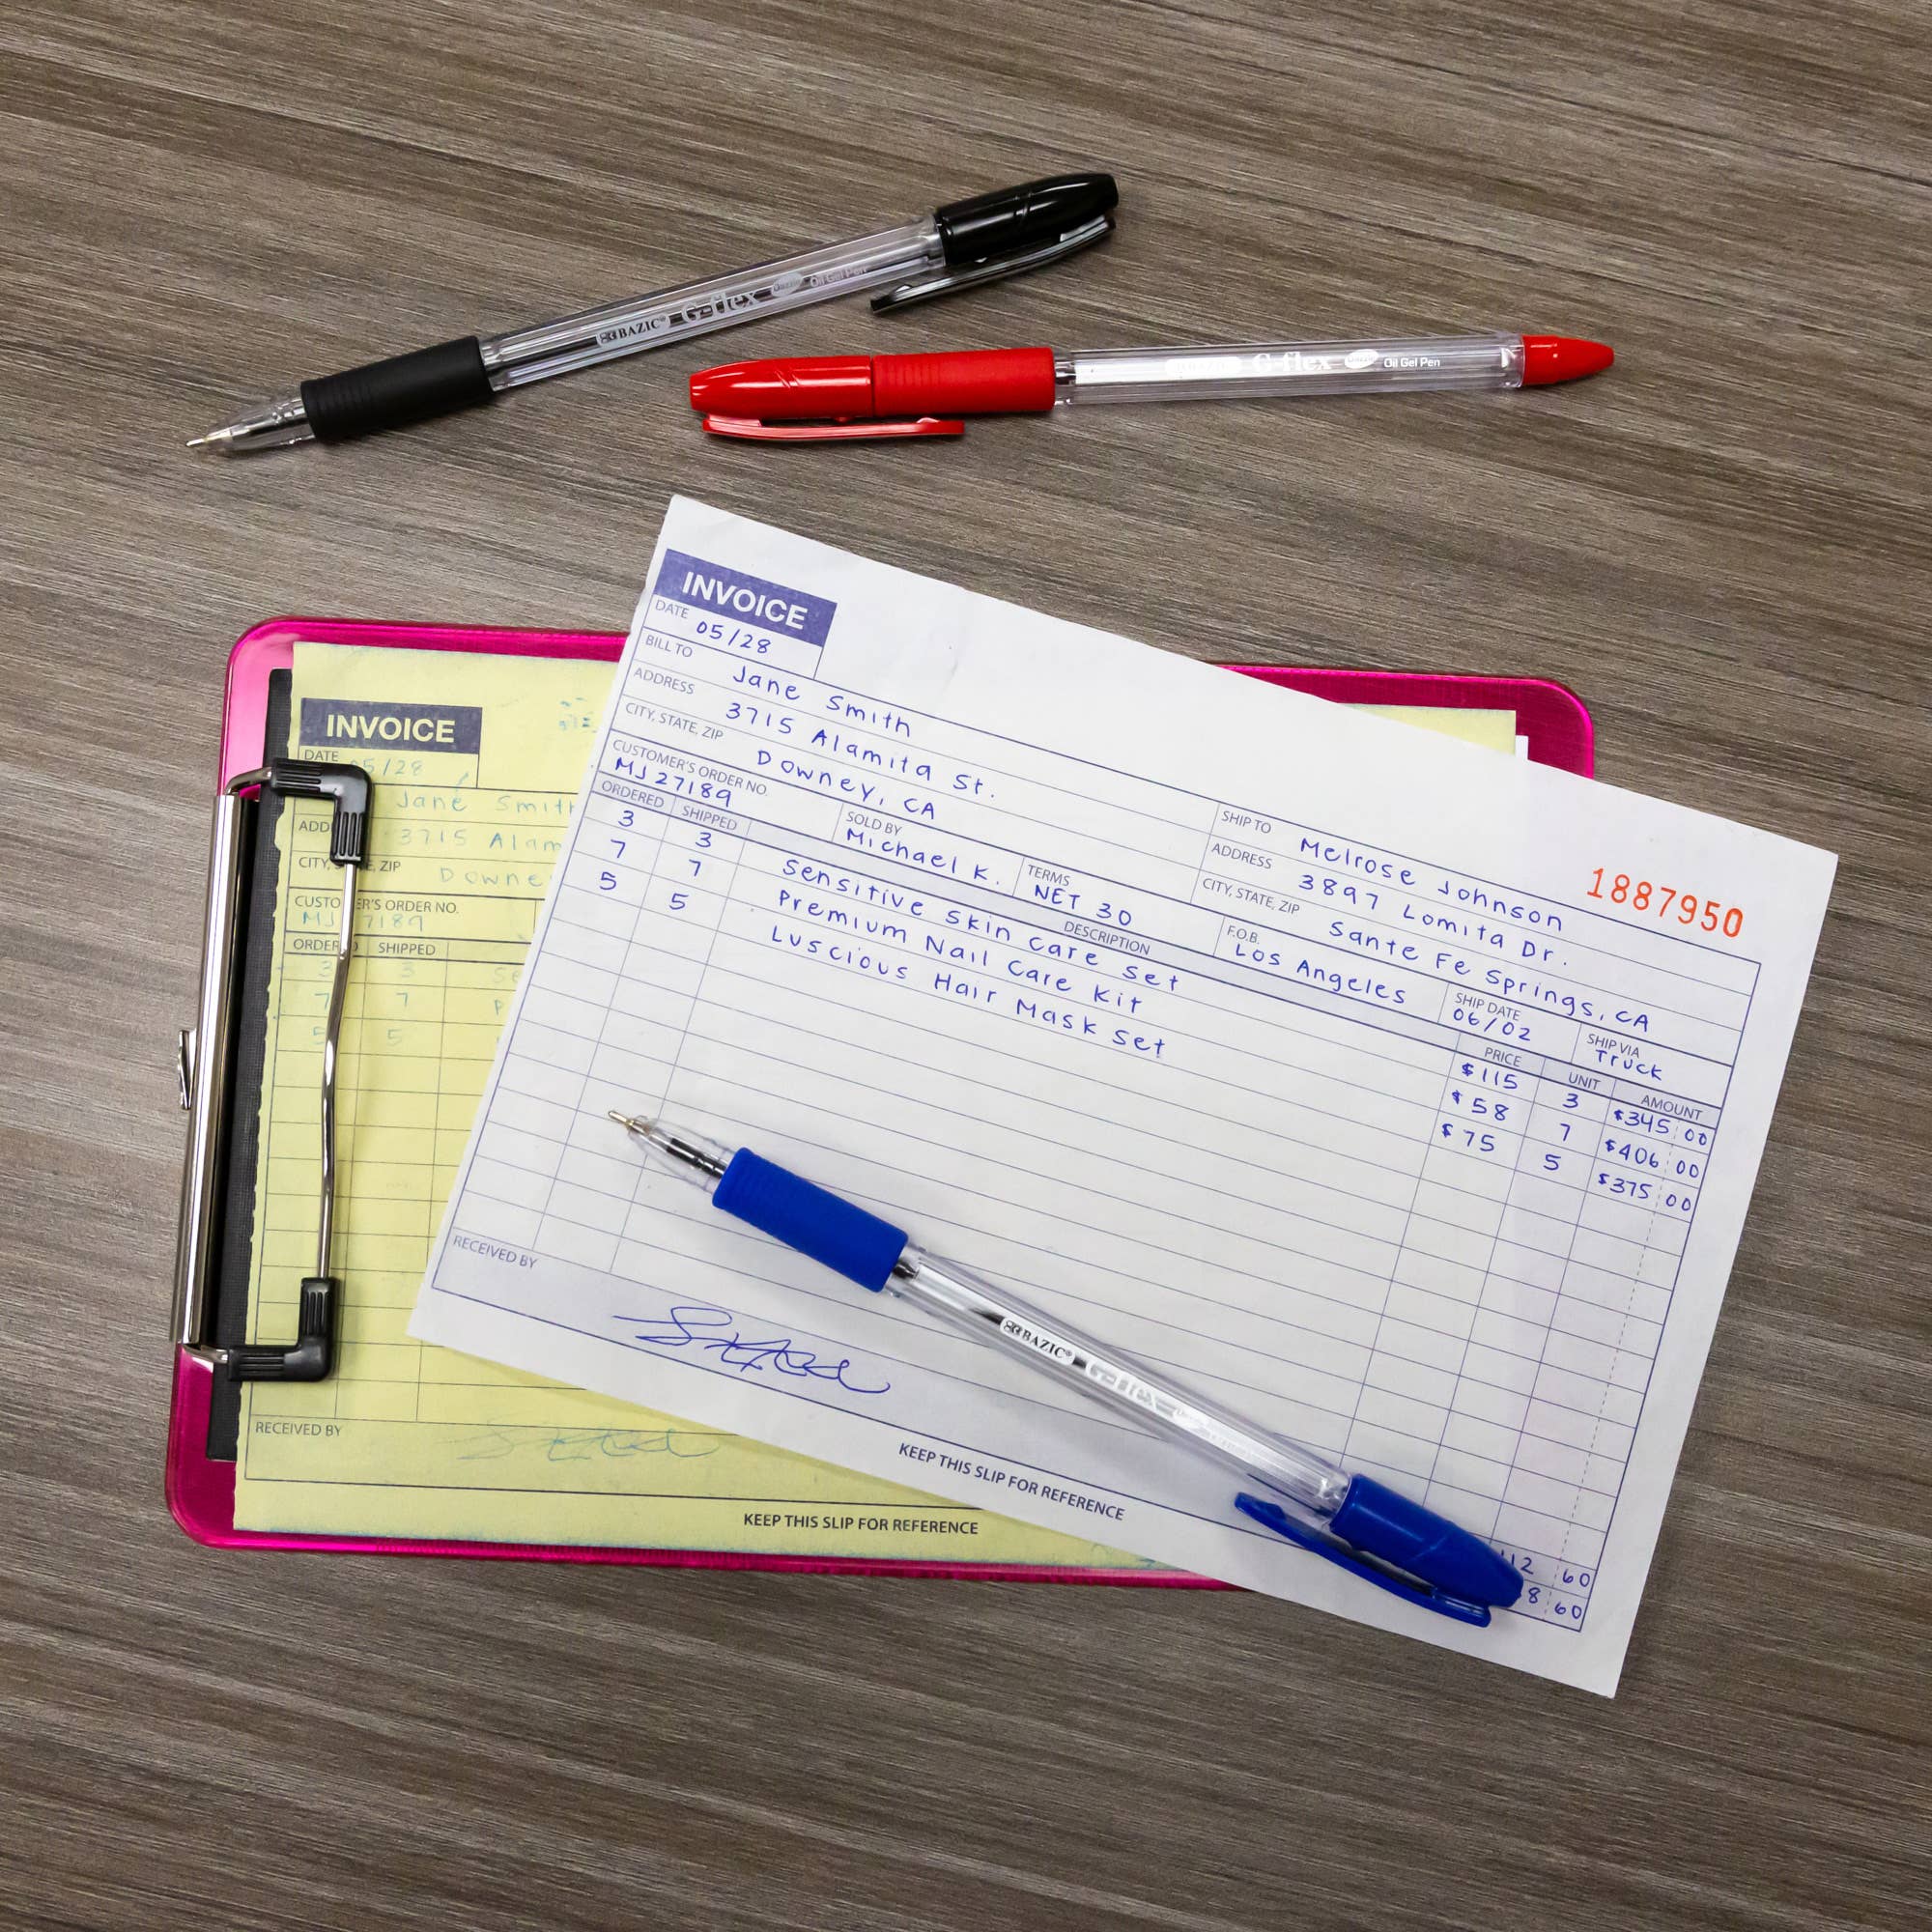 BAZIC® G-flex Oil Gel Pen
G-flex Oil Gel Pen
INVOICE
DATE 05/28
BILL TO Jane Smith
ADDRESS 3715 Alamita St.
CITY, STATE, ZIP Downey, CA
SHIP TO Melrose Johnson
ADDRESS 3897 Lomita Dr.
CITY, STATE, ZIP Sante Fe Springs, CA
1887950
CUSTOMER'S ORDER NO. MJ27189
SOLD BY Michael K.
TERMS NET 30
F.O.B. Los Angeles
SHIP DATE 06/02
SHIP VIA Truck
ORDERED SHIPPED DESCRIPTION PRICE UNIT AMOUNT
3 3 Sensitive Skin Care Set $115 3 $345 00
7 7 Premium Nail Care Kit $58 7 $406 00
5 5 Luscious Hair Mask Set $75 5 $375 00
12 60
8 60
RECEIVED BY
KEEP THIS SLIP FOR REFERENCE
BAZIC® G-flex
INVOICE
DATE 05/28
Jane Smith
ADD 3715 Alam
CITY, ZIP Downe
CUSTO ER'S ORDER NO.
MJ 7189
ORDER SHIPPED
3 3 Se
7 7 P
5 5
RECEIVED BY
KEEP THIS SLIP FOR REFERENCE